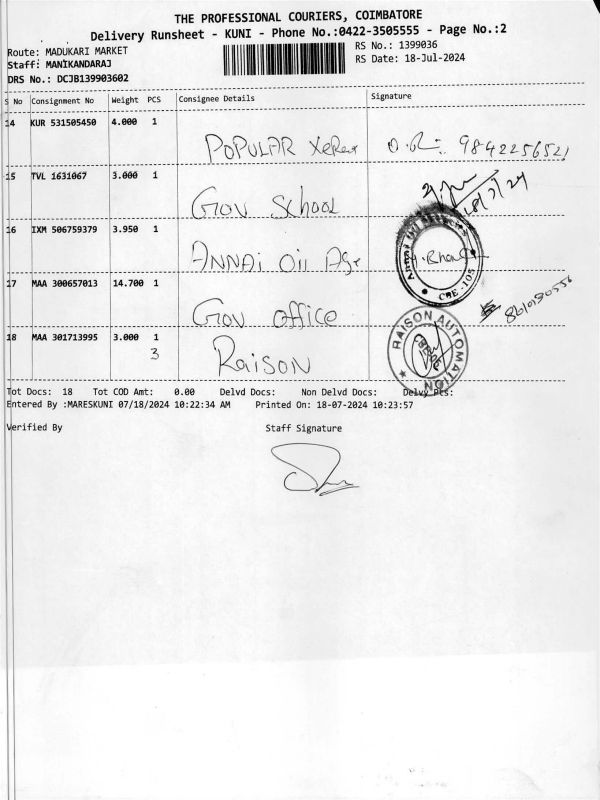 THE PROFESSIONAL COURIERS, COIMBATORE
Delivery Runsheet - KUNI - Phone No.:0422-3505555 - Page No.:2
Route: MADUKARI MARKET
RS No.: 1399036
Staff: MANIKANDARAJ
RS Date: 18-Jul-2024
DRS No.: DCJB139903602
S No Consignment No Weight PCS Consignee Details Signature
14 KUR 531505450 4.000 1
POPULAR Xerox 9842256521
15 TVL 1631067 3.000 1
Gov School 18/7/24
16 IXM 506759379 3.950 1
ANNAi Oil Agr
CBE-105
17 MAA 300657013 14.700 1
Gov office 8610980556
18 MAA 301713995 3.000 1
3
Raison
RAISON AUTOMATION
Tot Docs: 18 Tot COD Amt: 0.00 Delvd Docs: Non Delvd Docs: Delvy Pts:
Entered By :MARESKUNI 07/18/2024 10:22:34 AM Printed On: 18-07-2024 10:23:57
Verified By Staff Signature